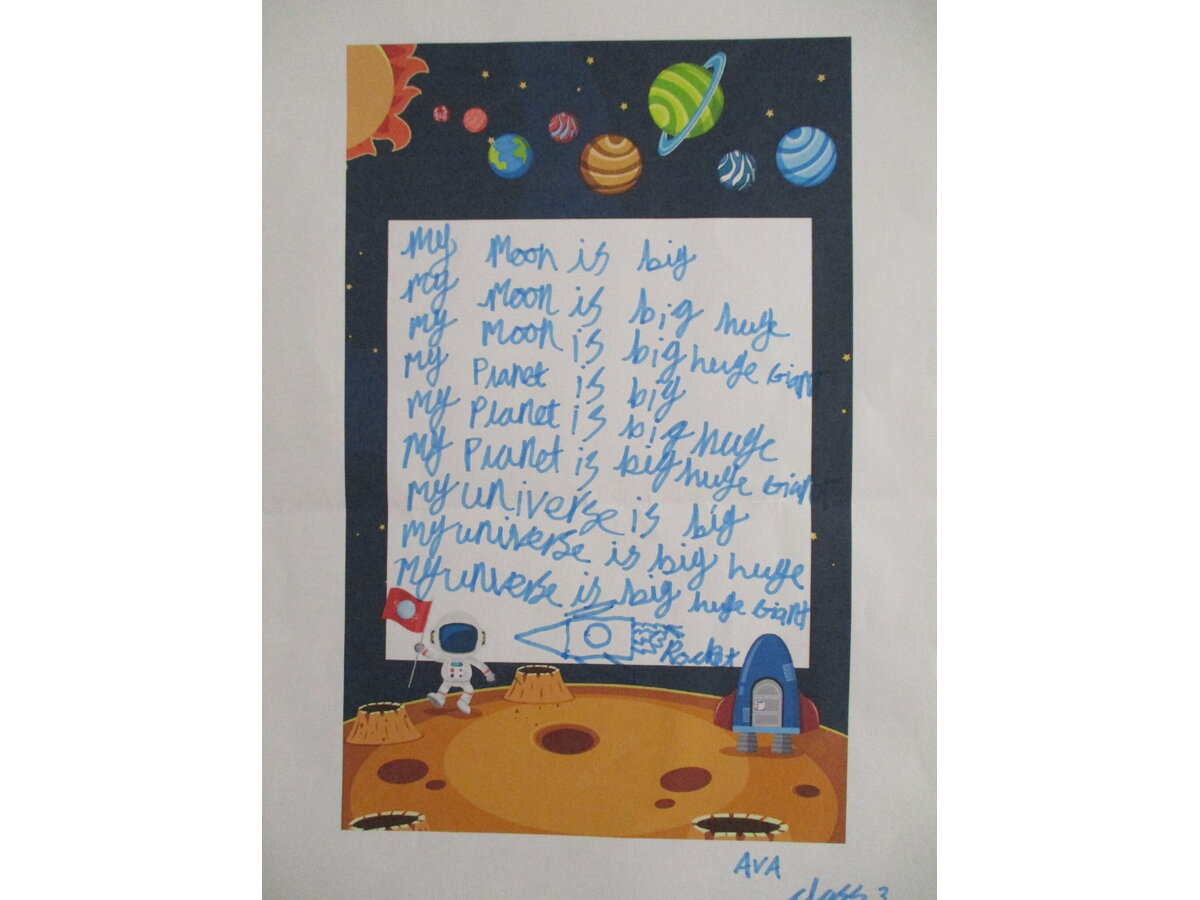 my Moon is big
my Moon is big huge
my Moon is big huge Giant
my Planet is big
my Planet is big huge
my Planet is big huge Gian
my universe is big
my universe is big huge
my universe is big huge Giant
Rocket
AVA
class 3